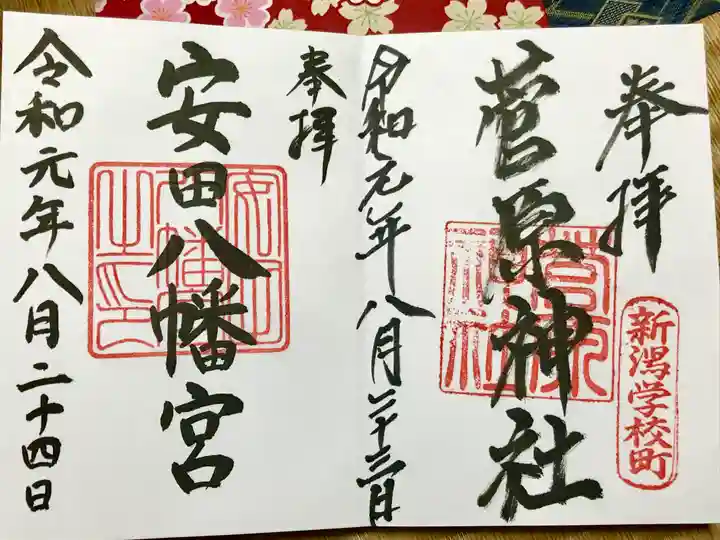 奉拝
新潟学校町
菅原神社
令和元年八月二十三日
奉拝
安田八幡宮
令和元年八月二十四日